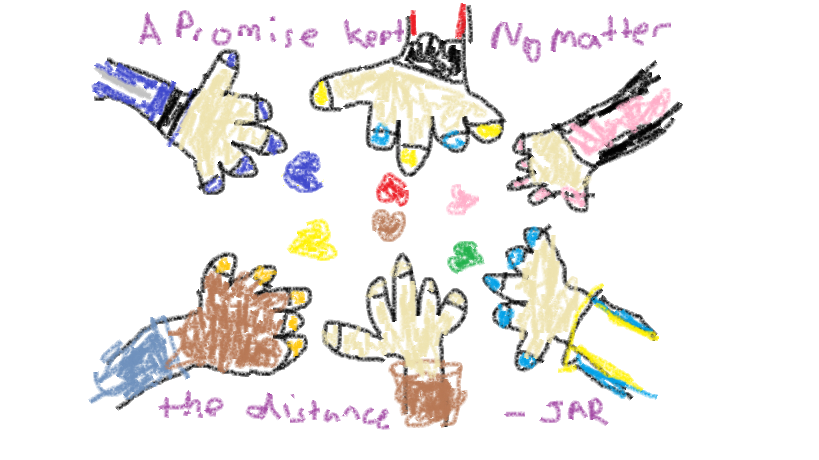 A Promise kept No matter
the distance - JAR